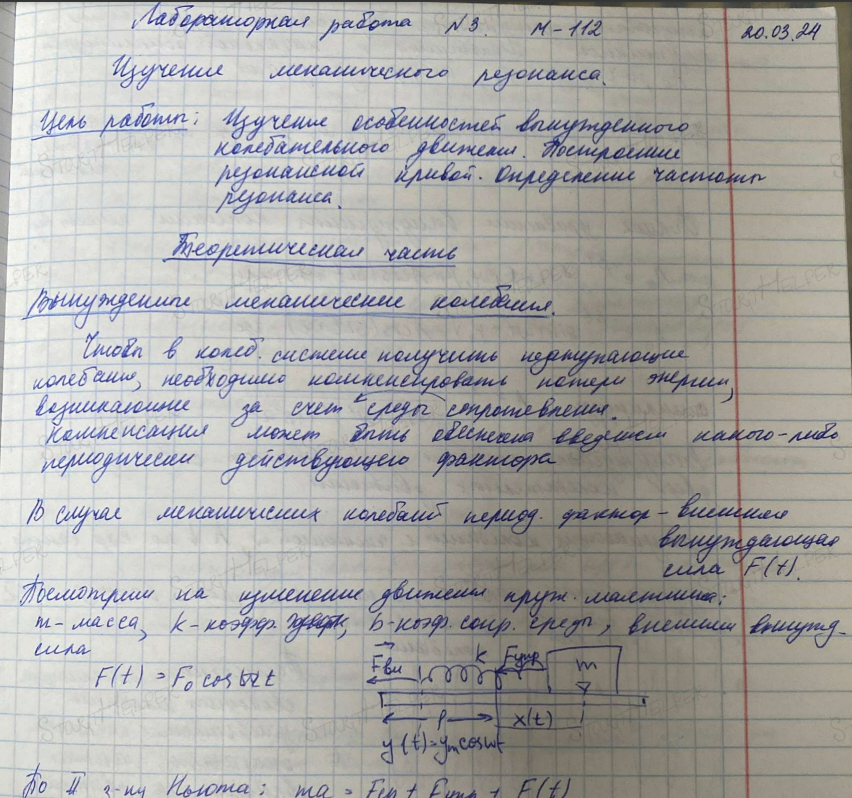 Лабораторная работа №3. М-112 20.03.24
Изучение механического резонанса.
Цель работы: Изучение особенностей вынужденного
колебательного движения. Построение
резонансной кривой. Определение частоты
резонанса.
Теоретическая часть
Вынужденные механические колебания.
Чтобы в колеб. системе получить незатухающие
колебания, необходимо компенсировать потери энергии,
возникающие за счет среды сопротивления.
Компенсация может быть обеспечена введением какого-либо
периодически действующего фактора
В случае механических колебаний период. фактор - внешняя
вынуждающая
сила F(t).
Посмотрим на изменение движения пруж. маятника:
m-масса, k-коэфф. b-коэф. сопр. среды, внешняя вынужд.
сила
F(t) = F₀ cos ωt
Fвн k Fупр m
l x(t)
y(t)=yₘcosωt
По II з-ну Ньютона: ma = Fсп + Fупр + F(t)